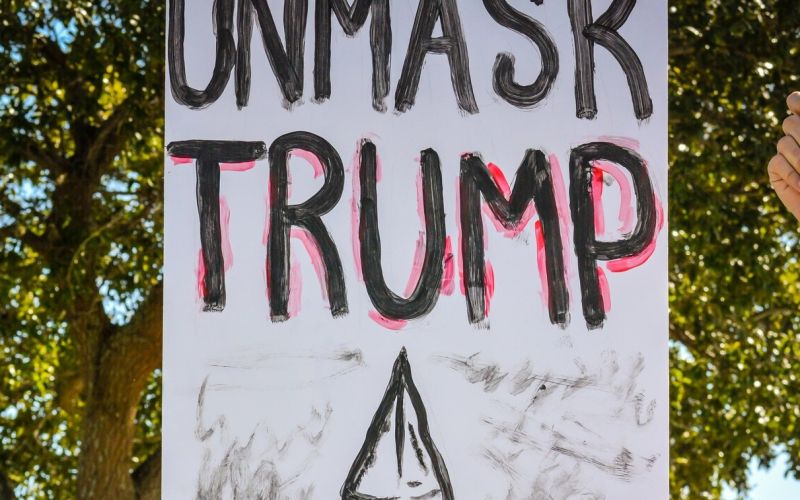 UNMASK
TRUMP